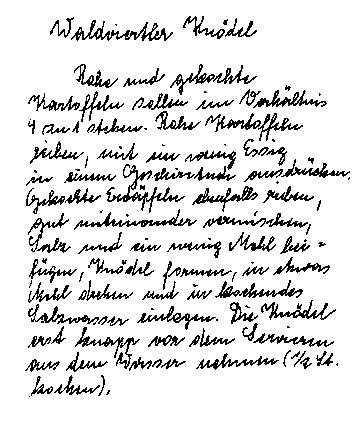 Waldviertler Knödel
Rohe und gekochte
Kartoffeln sollen im Verhältnis
4 zu 1 stehen. Rohe Kartoffeln
reiben, mit ein wenig Essig
in einem Geschirrtuch ausdrücken,
Gekochte Erdäpfeln ebenfalls reiben,
gut miteinander vermischen,
Salz und ein wenig Mehl bei=
fügen, Knödel formen, in etwas
Mehl drehen und in kochendes
Salzwasser einlegen. Die Knödel
erst knapp vor dem Servieren
aus dem Wasser nehmen (1/2 St.
kochen).